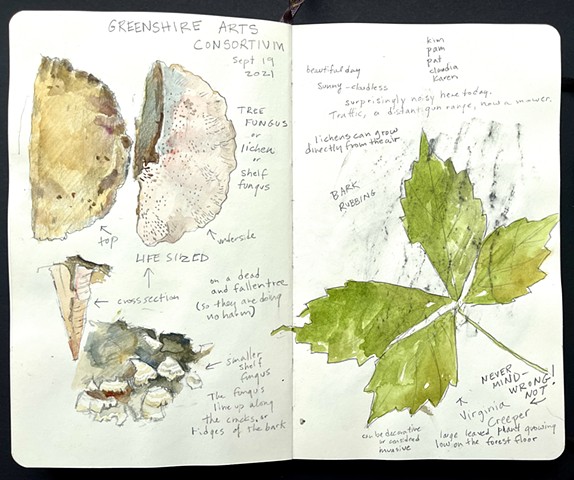 GREENSHIRE ARTS
CONSORTIUM
Sept 19
2021
TREE
FUNGUS
or
lichen
or
shelf
fungus
top
underside
LIFE SIZED
cross section
on a dead
and fallen tree
(so they are doing
no harm)
smaller
shelf
fungus
The fungus
line up along
the cracks or
ridges of the bark
kim
pam
pat
claudia
Karen
beautiful day
Sunny - cloudless
surprisingly noisy here today.
Traffic, a distant gun range, now a mower.
lichens can grow
directly from the air
BARK
RUBBING
NEVER
MIND-
WRONG!
NOT
Virginia
Creeper
large leaved plant growing
low on the forest floor
can be decorative
or considered
invasive